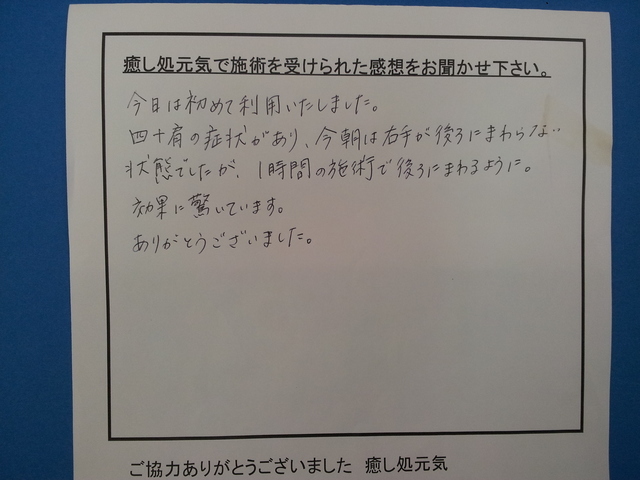 癒し処元気で施術を受けられた感想をお聞かせ下さい。
今日は初めて利用いたしました。
四十肩の症状があり、今朝は右手が後ろにまわらない
状態でしたが、1時間の施術で後ろにまわるように。
効果に驚いています。
ありがとうございました。
ご協力ありがとうございました 癒し処元気